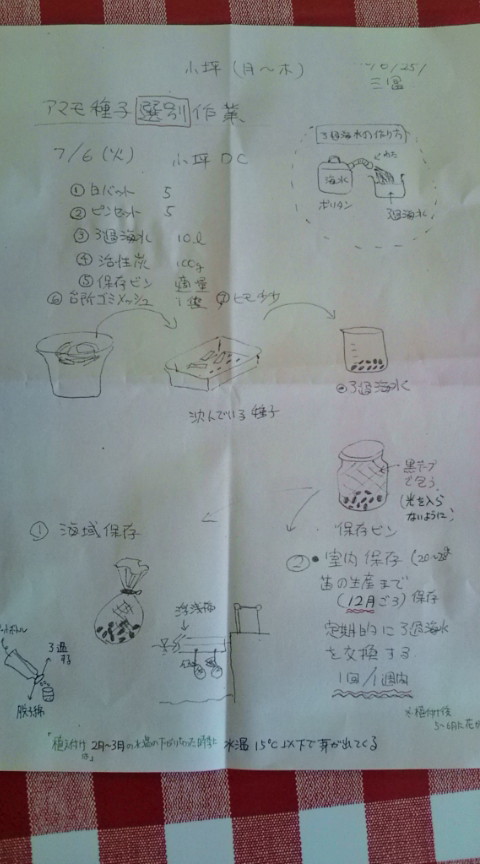 小坪 (月〜木)
アマモ種子 選別 作業
ろ過海水の作り方
7/6 (火) 小坪DC
海水
ポリタン
ろ過海水
① 白バット 5
② ピンセット 5
③ ろ過海水 10ℓ
④ 活性炭 100g
⑤ 保存ビン 適量
⑥ 台所ゴミメッシュ 1袋 ⑦ ヒモ少々
ろ過海水
沈んでいる種子
黒テープ
で包う
(光を入ら
ないように)
保存ビン
① 海域保存
② • 室内保存
苗の生産まで
(12月ごろ) 保存
定期的にろ過海水
を交換する
1回/1週内
浮桟橋
ろ過
脱脂綿
※植付後
水温15℃以下で芽が出てくる